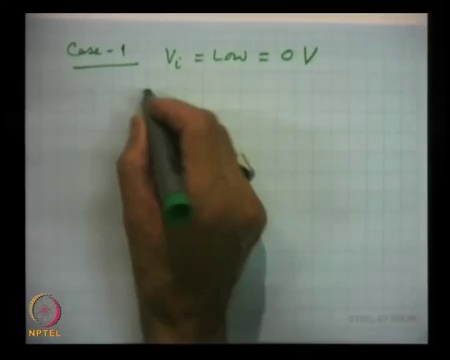 Case-1 Vi = Low = 0 V
NPTEL